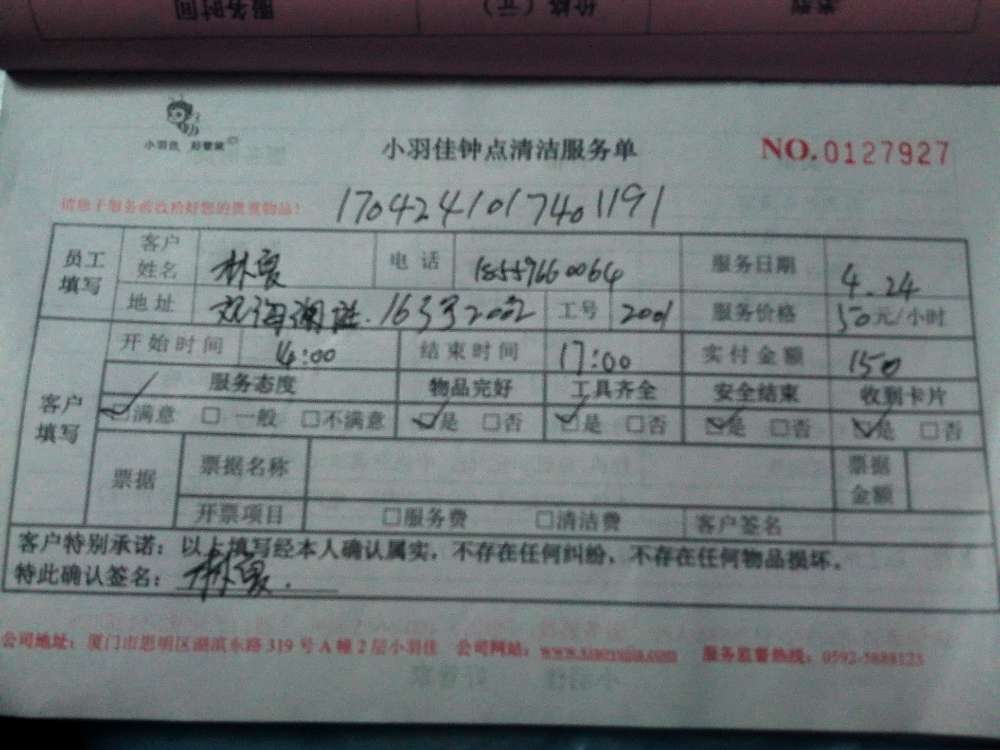 服务时间 价格（元） 类型
小羽佳 好管家
小羽佳钟点清洁服务单
NO.0127927
请您于服务前收拾好您的贵重物品！
1704241017401191
员工填写 客户姓名 林 电话 18559660064 服务日期 4.24
地址 观海澜 1633 2002 工号 2001 服务价格 50元/小时
客户填写 开始时间 14:00 结束时间 17:00 实付金额 150
服务态度 物品完好 工具齐全 安全结束 收到卡片
☑满意 □一般 □不满意 ☑是 □否 ☑是 □否 ☑是 □否 ☑是 □否
票据 票据名称 票据金额
开票项目 □服务费 □清洁费 客户签名
客户特别承诺：以上填写经本人确认属实，不存在任何纠纷，不存在任何物品损坏。
特此确认签名： 林
公司地址：厦门市思明区湖滨东路319号A幢2层小羽佳 公司网站： 服务监督热线：0592-5888123